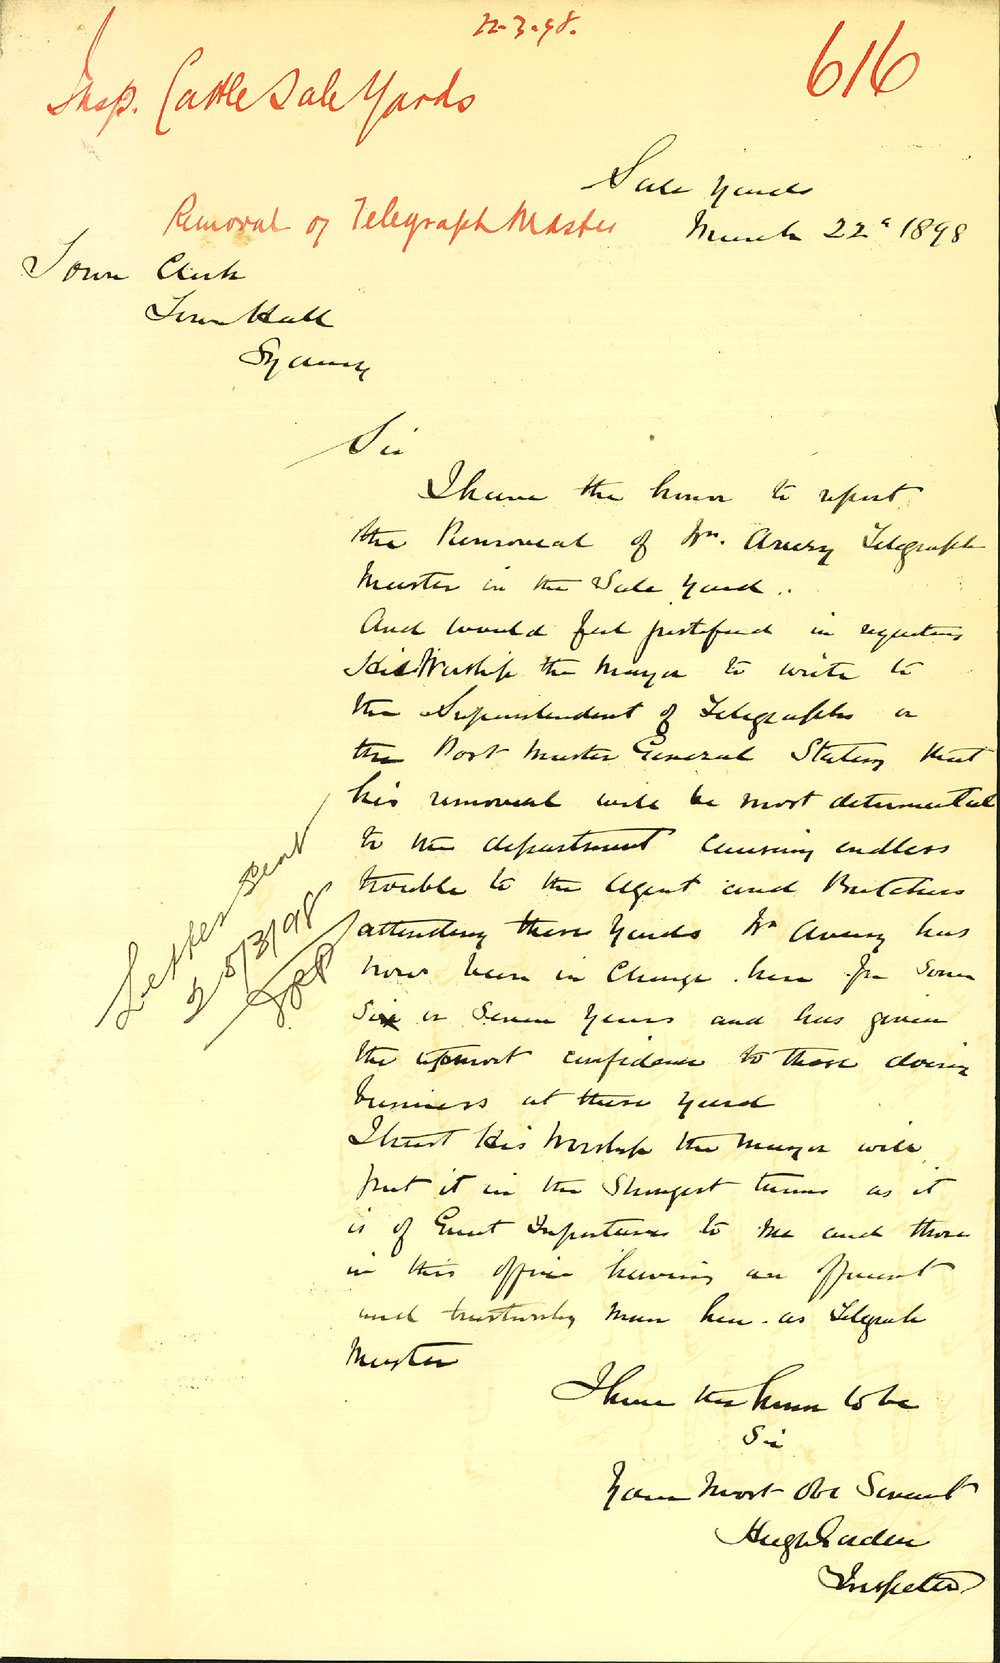 22-3-98.
616
Insp. Cattle Sale Yards
Sale Yards
March 22d 1898
Removal of Telegraph Master
Town Clerk
Town Hall
Sydney
Sir
I have the honor to report
the Removeal of Mr. Avery Telegraph
Master in the Sale Yard.
And would feel justified in requesting
His Worship the Mayor to write to
the Superintendent of Telegraphs or
the Post Master General Stating that
his removeal will be most detrimental
to the department Causing endless
trouble to the Agent and Butchers
attending these Yards Mr Avery has
now been in Charge here for Some
Six or Seven Years and has given
the utmost confidence to those doing
business at these Yard
I trust His Worship the Mayor will
put it in the Strongest terms as it
is of Great Importance to Me and those
in this office having an
and trustworthy Man here as Telegraph
Master
I have the honor to be
Sir
Your Most Obe Servant
Hugh
Inspector
Letter Sent
25/3/98